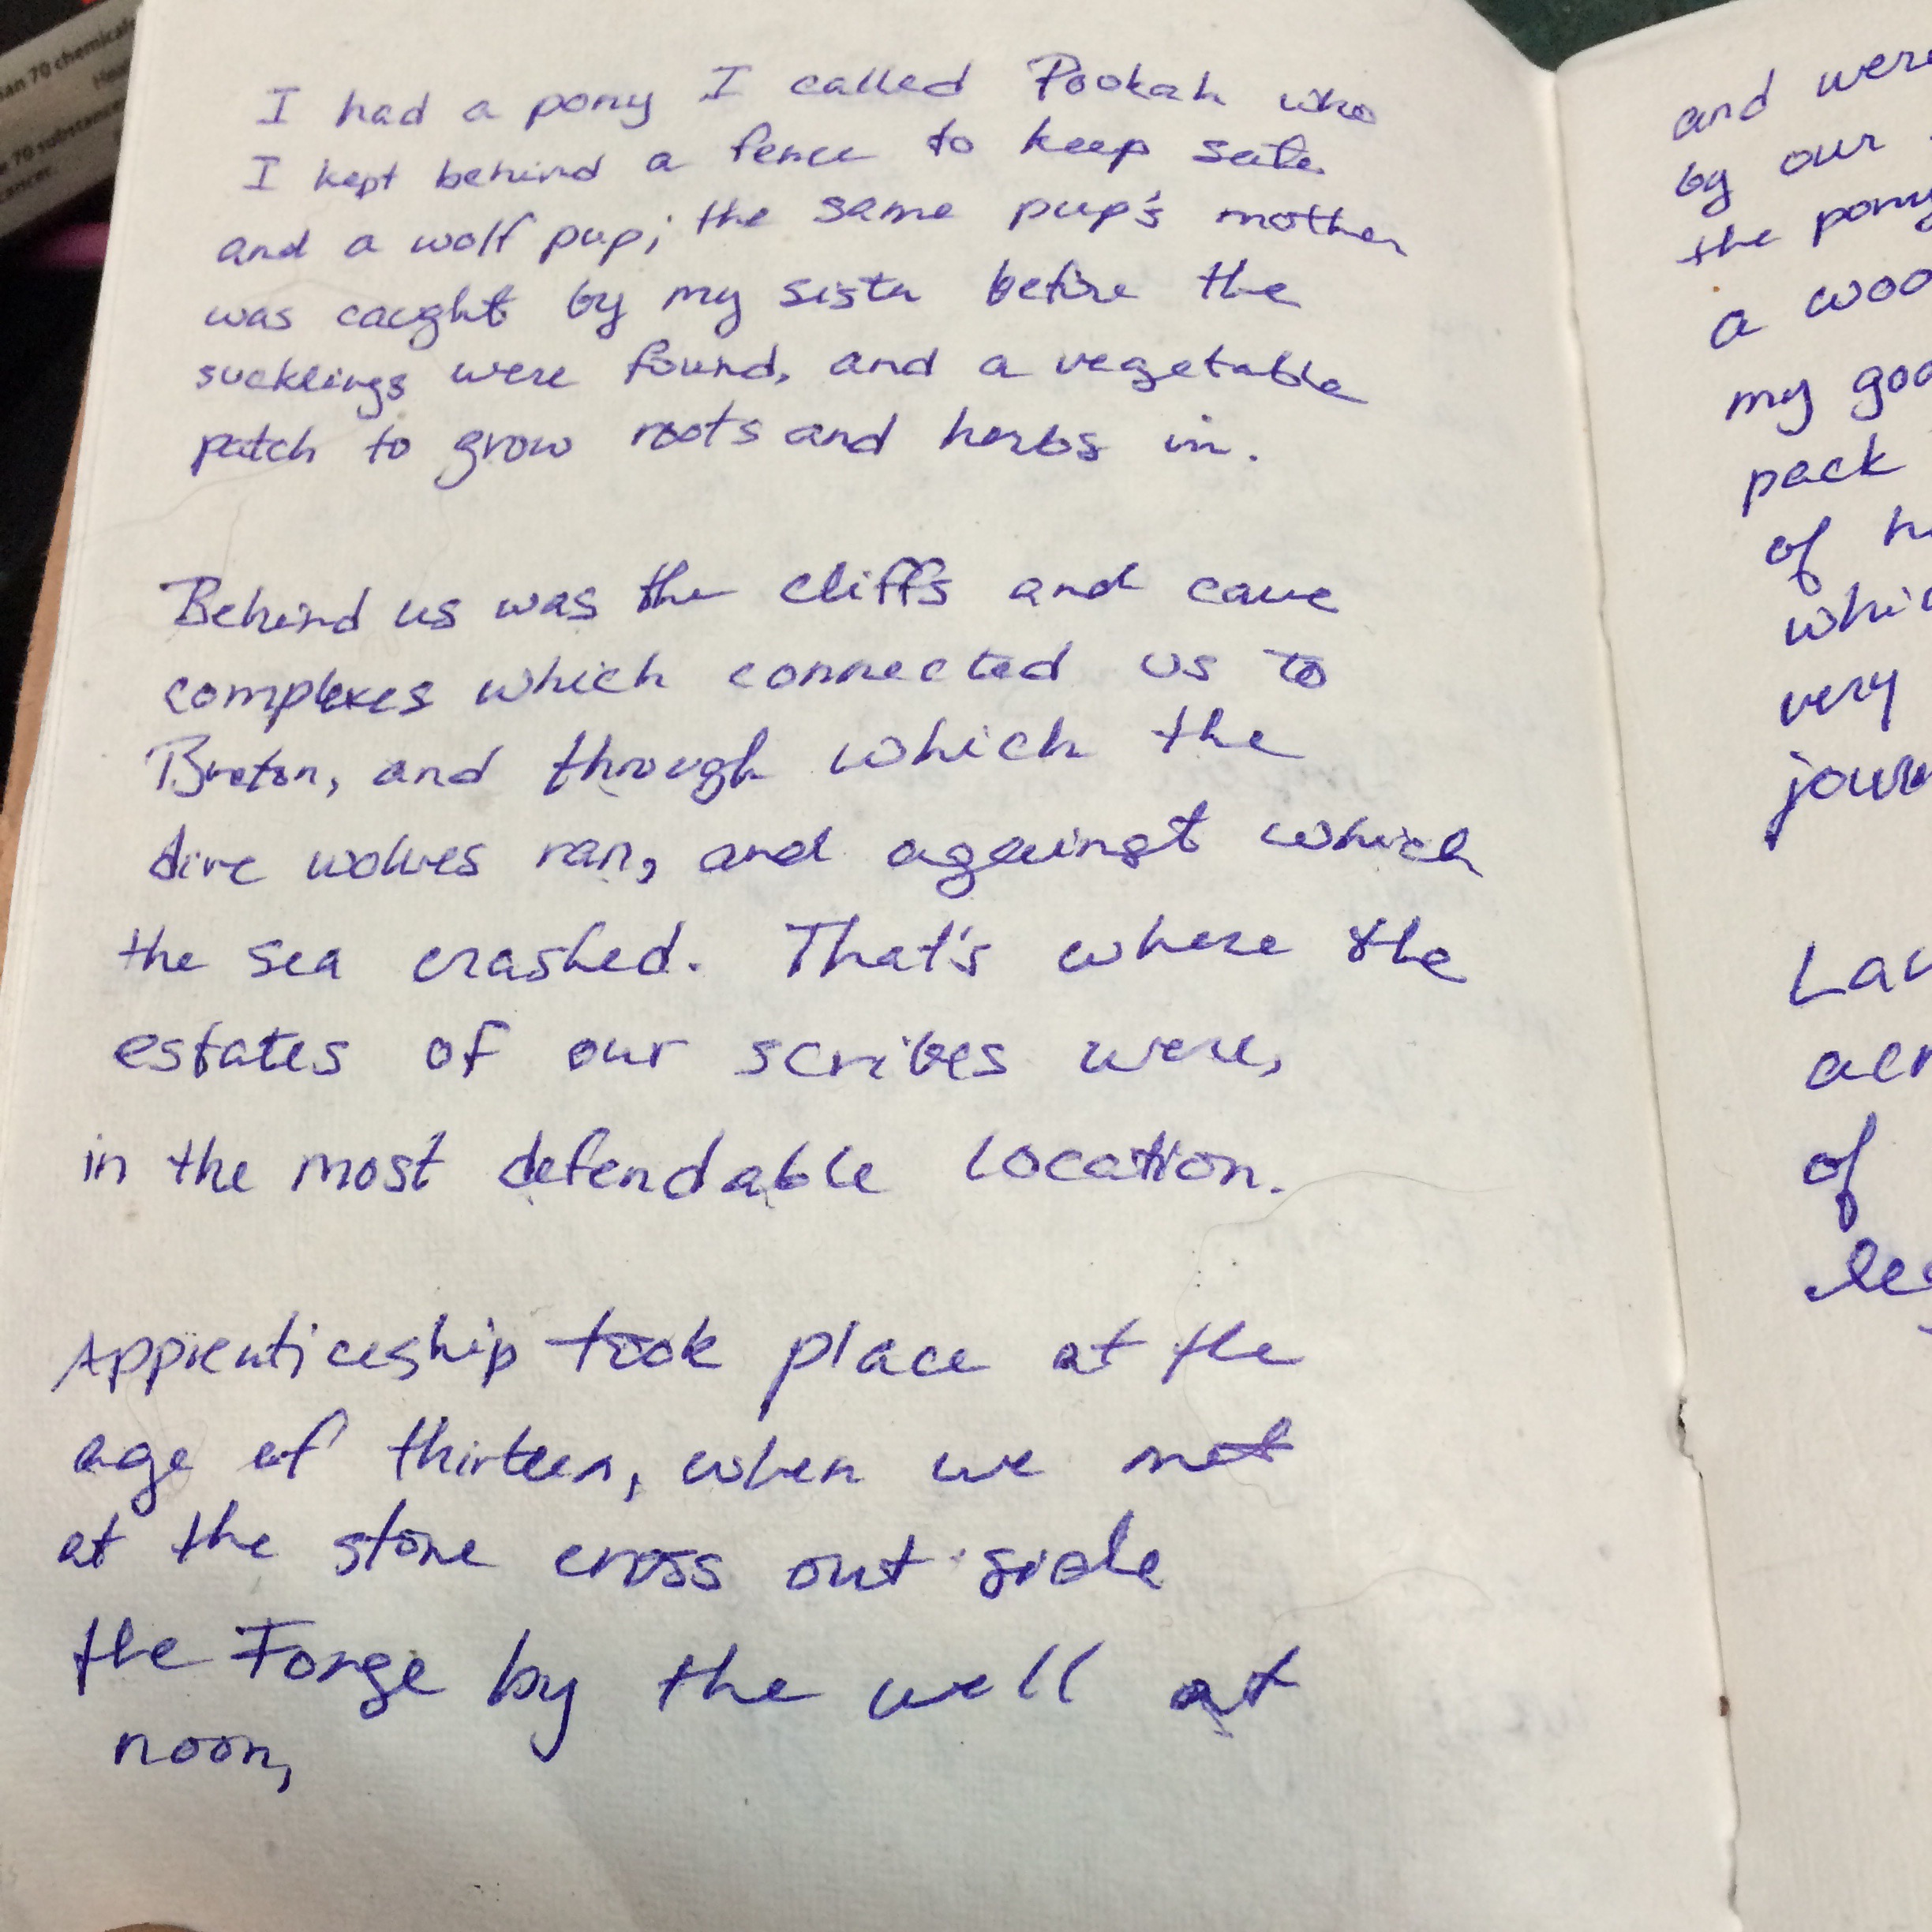 an 70 chemical
70 substance
cancer.
I had a pony I called Pookah who
I kept behind a fence to keep safe
and a wolf pup; the same pup's mother
was caught by my sister before the
sucklings were found, and a vegetable
patch to grow roots and herbs in.
Behind us was the cliffs and cave
complexes which connected us to
Breton, and through which the
dire wolves ran, and against which
the sea crashed. That's where the
estates of our scribes were,
in the most defendable location.
Apprenticeship took place at the
age of thirteen, when we met
at the stone cross out side
the Forge by the well at
noon,
and were
by our
the pony
a woo
my goo
pack
of h
whic
very
journ
Lav
acr
of
leg